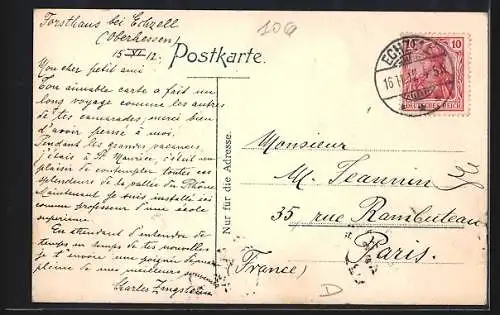 Forsthaus bei Echzell
(Oberhessen)
15 XI 12.
Mon cher petit ami
Ton aimable carte a fait un
long voyage comme les autres
de tes camarades, merci bien
d'avoir pensé à moi.
Pendant les grandes vacances
j'étais à St Maurice, c'était un
plaisir de contempler toutes ces
splendeurs de la vallée du Rhône
Maintenant je suis installé ici
comme professeur d'une école
supérieure.
En attendant d'entendre de
temps en temps de tes nouvelles
je t'envoie une poignée de main
pleine de mes meilleurs
Charles
109
Postkarte.
Nur für die Adresse.
10 10
DEUTSCHES REICH
ECHZELL
16.11.12
Monsieur
M. Jeannin
35 rue Rambuteau
Paris.
(France)
D